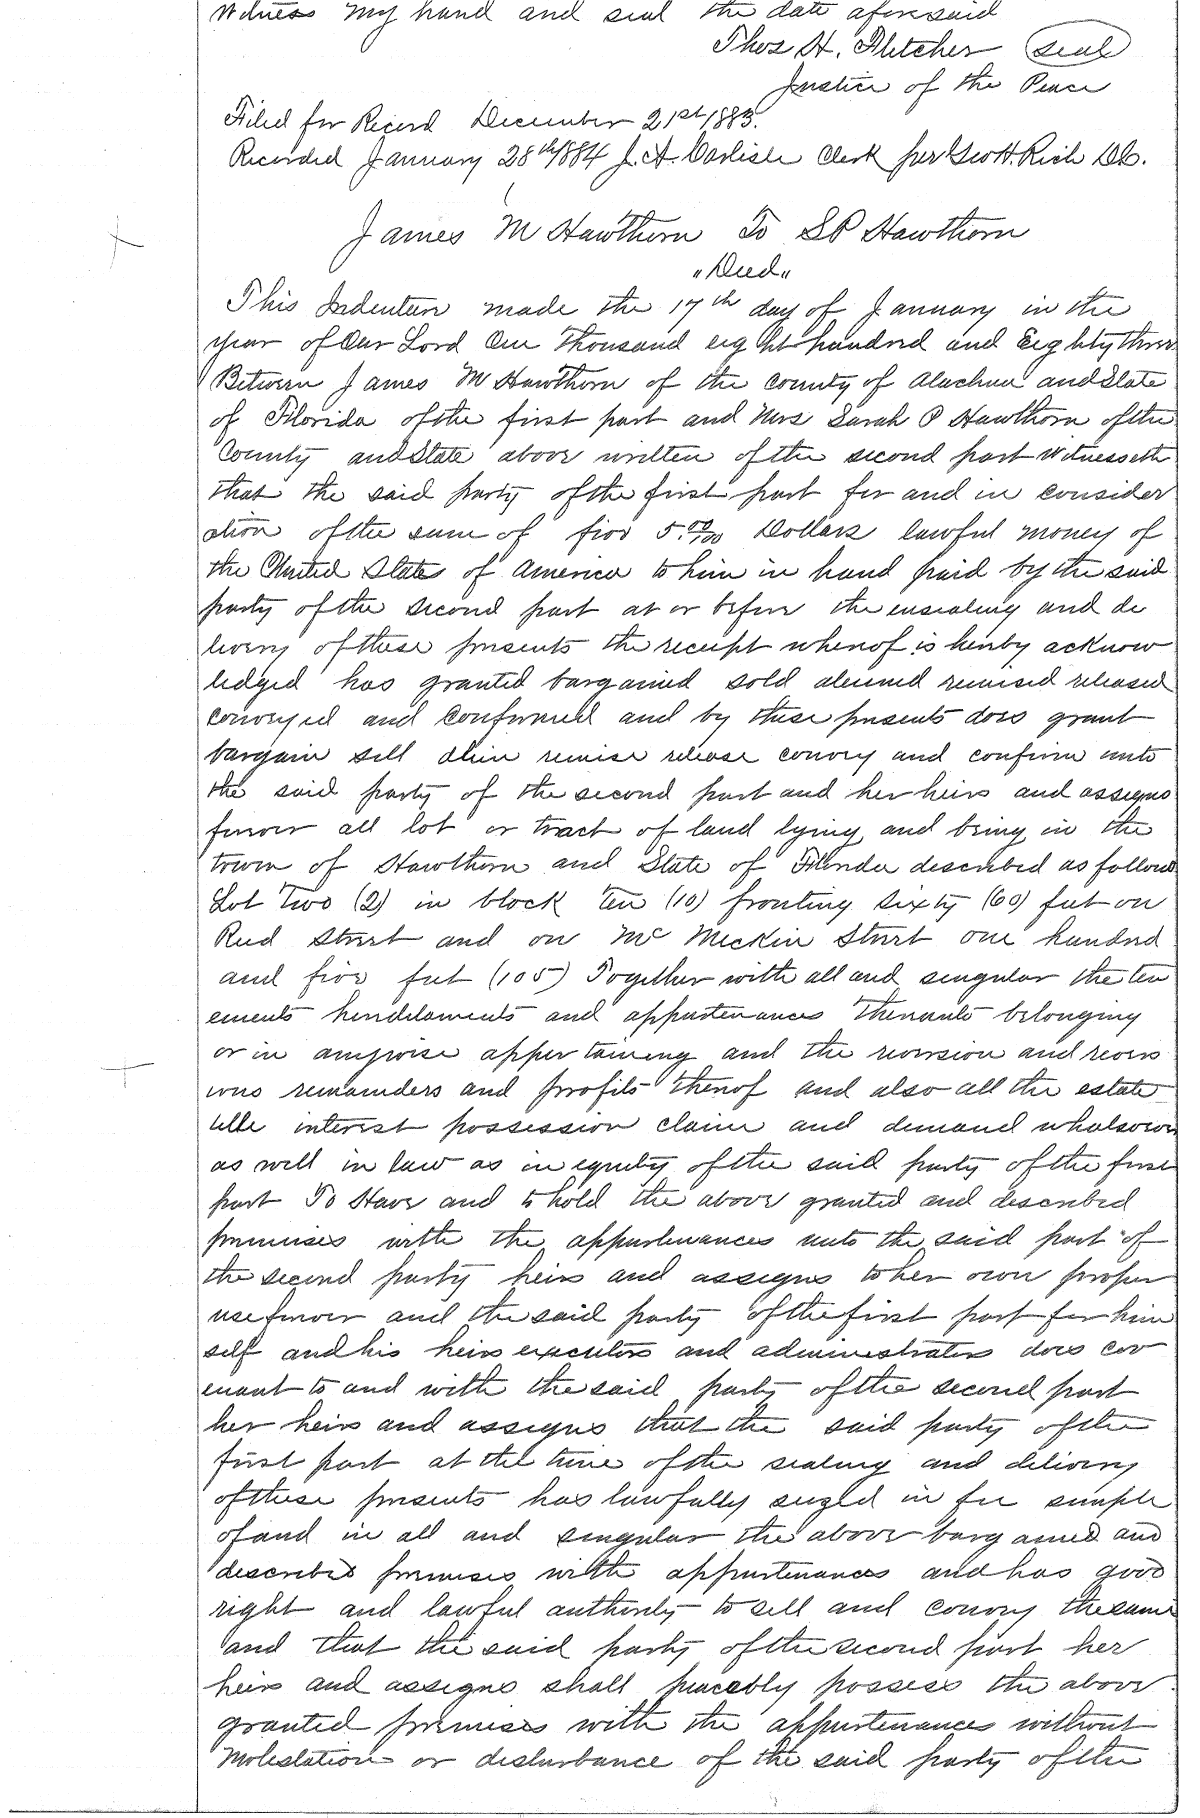 Witness my hand and seal the date aforesaid
Thos H. Fletcher seal
Justice of the Peace
Filed for Record December 21st 1883.
Recorded January 28th 1884 J. A. Carlisle Clerk per Geo H. Rich DC.
James M Hawthorn To S P Hawthorn
"Deed"
This Indenture made the 17th day of January in the
year of Our Lord One thousand eight hundred and Eighty three
Between James M Hawthorn of the County of Alachua and State
of Florida of the first part and Mrs Sarah P Hawthorn of the
County and State above written of the second part Witnesseth
that the said party of the first part for and in consider
ation of the sum of five 5.00/100 Dollars lawful money of
the United States of America to him in hand paid by the said
party of the second part at or before the ensealing and de
livery of these presents the receipt whereof is hereby acknow
ledged has granted bargained sold aliened remised released
conveyed and confirmed and by these presents does grant
bargain sell alien remise release convey and confirm unto
the said party of the second part and her heirs and assigns
forever all lot or tract of land lying and being in the
town of Hawthorn and State of Florida described as follows
Lot Two (2) in block Ten (10) fronting sixty (60) feet on
Reed Street and on Mc Meekin Street one hundred
and five feet (105) Together with all and singular the ten
ements hereditaments and appurtenances thereunto belonging
or in anywise appertaining and the reversion and revers
ions remainders and profits thereof and also all the estate
title interest possession claim and demand whatsoever
as well in law as in equity of the said party of the first
part To Have and to hold the above granted and described
premises with the appurtenances unto the said part of
the second party heirs and assigns to her own proper
use forever and the said party of the first part for him
self and his heirs executors and administrators does cov
enant to and with the said party of the second part
her heirs and assigns that the said party of the
first part at the time of the sealing and delivery
of these presents has lawfully seized in fee simple
of and in all and singular the above bargained and
described premises with appurtenances and has good
right and lawful authority to sell and convey the same
and that the said party of the second part her
heirs and assigns shall peaceably possess the above
granted premises with the appurtenances without
molestation or disturbance of the said party of the